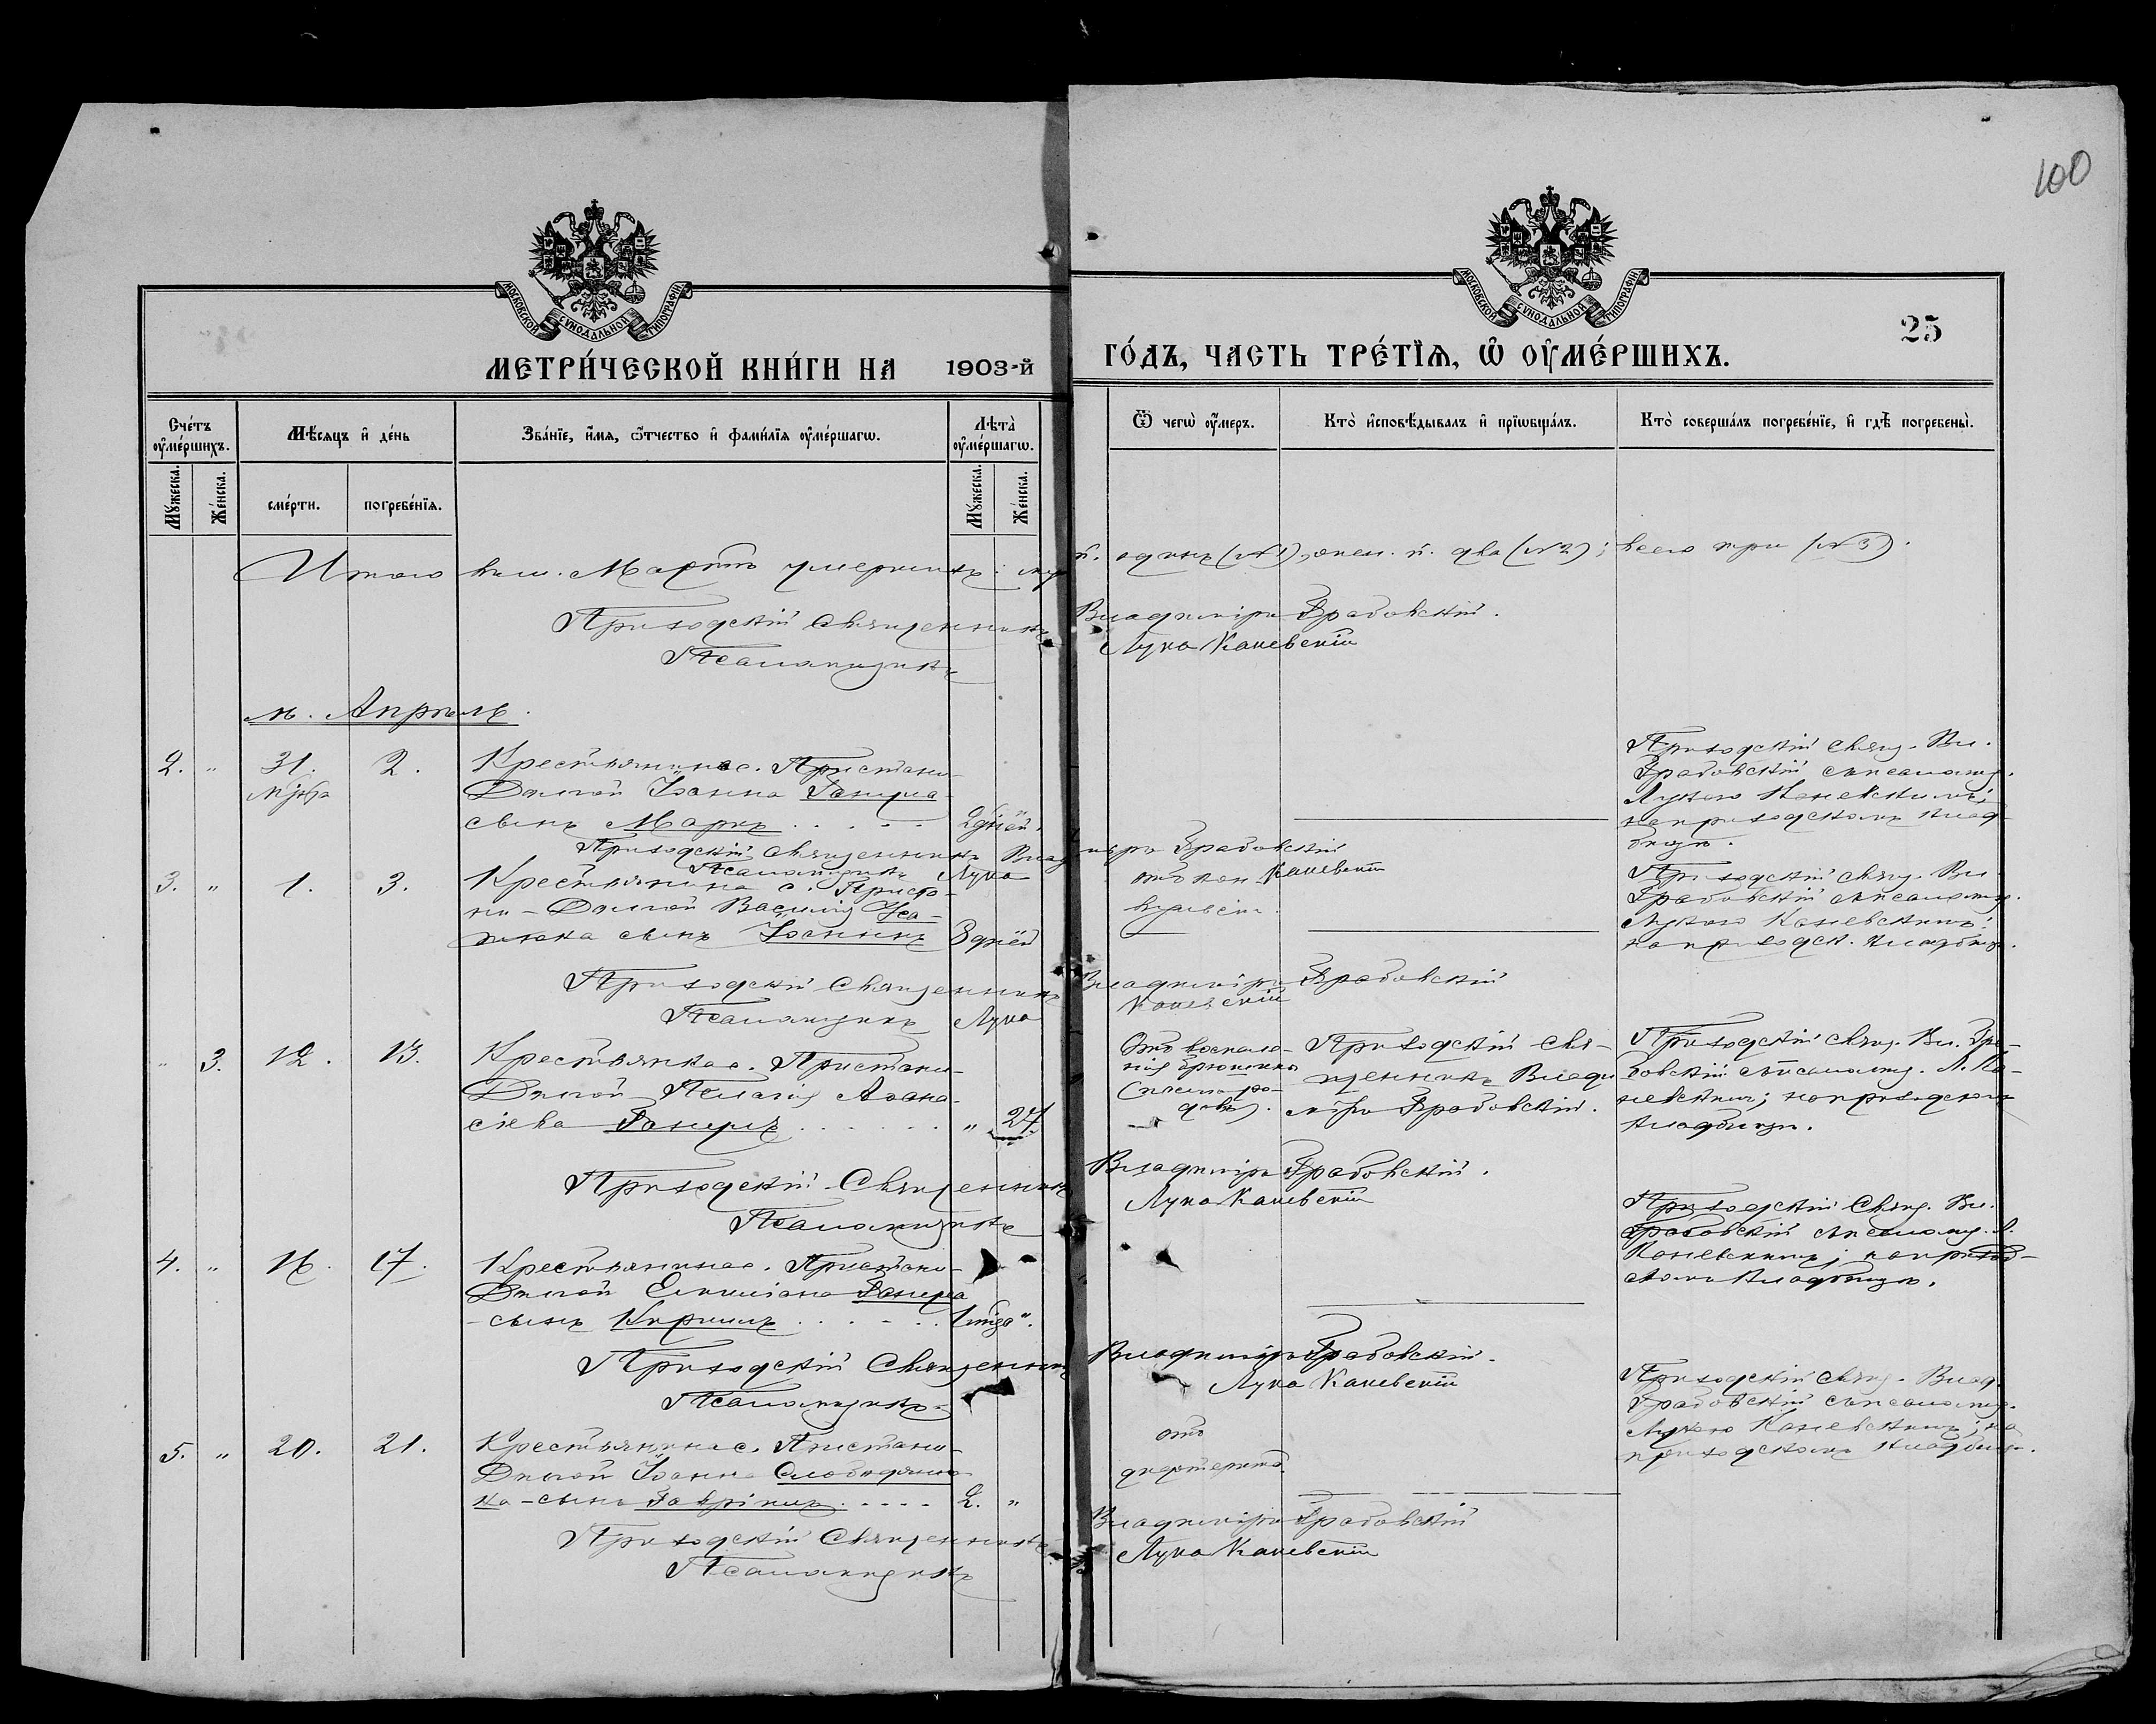 100
МОСКОВСКОЙ СУНОДАЛЬНОЙ ТИПОГРАФІИ
МОСКОВСКОЙ СУНОДАЛЬНОЙ ТИПОГРАФІИ
25
МЕТРИ́ЧЕСКОЙ КНИ́ГИ НА 1903-й ГО́ДЪ, ЧАСТЬ ТРЕ́ТІѦ, Ѡ ОУМЕ́РШИХЪ.
Сче́тъ оуме́ршихъ.
Мѣ́сѧцъ и де́нь
Зва́нїе, и́мѧ, ѻ́тчество и фами́лїѧ оуме́ршагѡ.
Лѣ́та оуме́ршагѡ.
Ѿ чегѡ̀ оу́меръ.
Кто̀ исповѣ́дывалъ и прїѡбща́лъ.
Кто̀ соверша́лъ погребе́нїе, и гдѣ̀ погребены̀.
Му́жеска.
Же́нска.
сме́рти.
погребе́нїѧ.
Му́жеска.
Же́нска.
Итого въ м. Мартѣ умершихъ: муж. п. одинъ (№ 1), жен. п. два (№ 2); всего три (№ 3).
Приходскій Священникъ Владиміръ Грабовскій.
Псаломщикъ Лука Каневскій
м. Апрѣль.
2. " 31. Марта 2.
Крестьянина с. Пристани-
Дмгой Іоанна Гануща
сынъ Маркъ . . . . . 2 дней.
Приходскій свящ. Вл.
Грабовскій съ псаломщ.
Лукою Каневскимъ;
на приходскомъ клад-
бищѣ.
Приходскій Священникъ Владиміръ Грабовскій
Псаломщикъ Лука Каневскій
3. " 1. 3.
Крестьянина с. Приста-
ни-Дмгой Василія
сынъ Іоаннъ 8 дней
Приходскій свящ. Вл.
Грабовскій съ псаломщ.
Лукою Каневскимъ;
на приходск. кладбищѣ.
Приходскій Священникъ Владиміръ Грабовскій
Псаломщикъ Лука Каневскій
" 3. 12. 13.
Крестьянка с. Пристани-
Дмгой Пелагія Аѳана-
сіева Ганущъ . . . . . . " 27.
Отъ воспале-
нія брюшины
Приходскій Свя-
щенникъ Влади-
міръ Грабовскій.
Приходскій свящ. Вл. Гра-
бовскій съ псаломщ. Л. Ка-
невскимъ; на приходскомъ
кладбищѣ.
Приходскій Священникъ Владиміръ Грабовскій.
Псаломщикъ Лука Каневскій
4. " 16. 17.
Крестьянина с. Пристани-
Дмгой Емиліана Гануща
сынъ Кириллъ . . . . . 1 года ".
Приходскій Свящ. Вл.
Грабовскій съ псаломщ. Л.
Каневскимъ; на приход-
скомъ кладбищѣ.
Приходскій Священникъ Владиміръ Грабовскій.
Псаломщикъ Лука Каневскій
5. " 20. 21.
Крестьянина с. Пристани-
Дмгой Іоанна Слободяни-
ка - сынъ Гавріилъ . . . . 2. "
отъ
дифтерита.
Приходскій свящ. Влад.
Грабовскій съ псаломщ.
Лукою Каневскимъ; на
приходскомъ кладбищѣ.
Приходскій Священникъ Владиміръ Грабовскій
Псаломщикъ Лука Каневскій